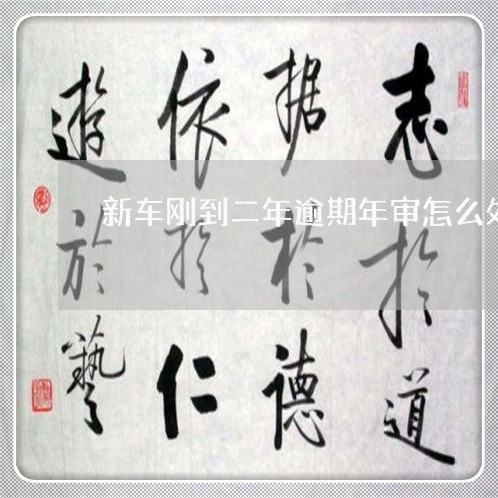 志於道
据於德
依於仁
遊於藝
新车刚到二年逾期年审怎么